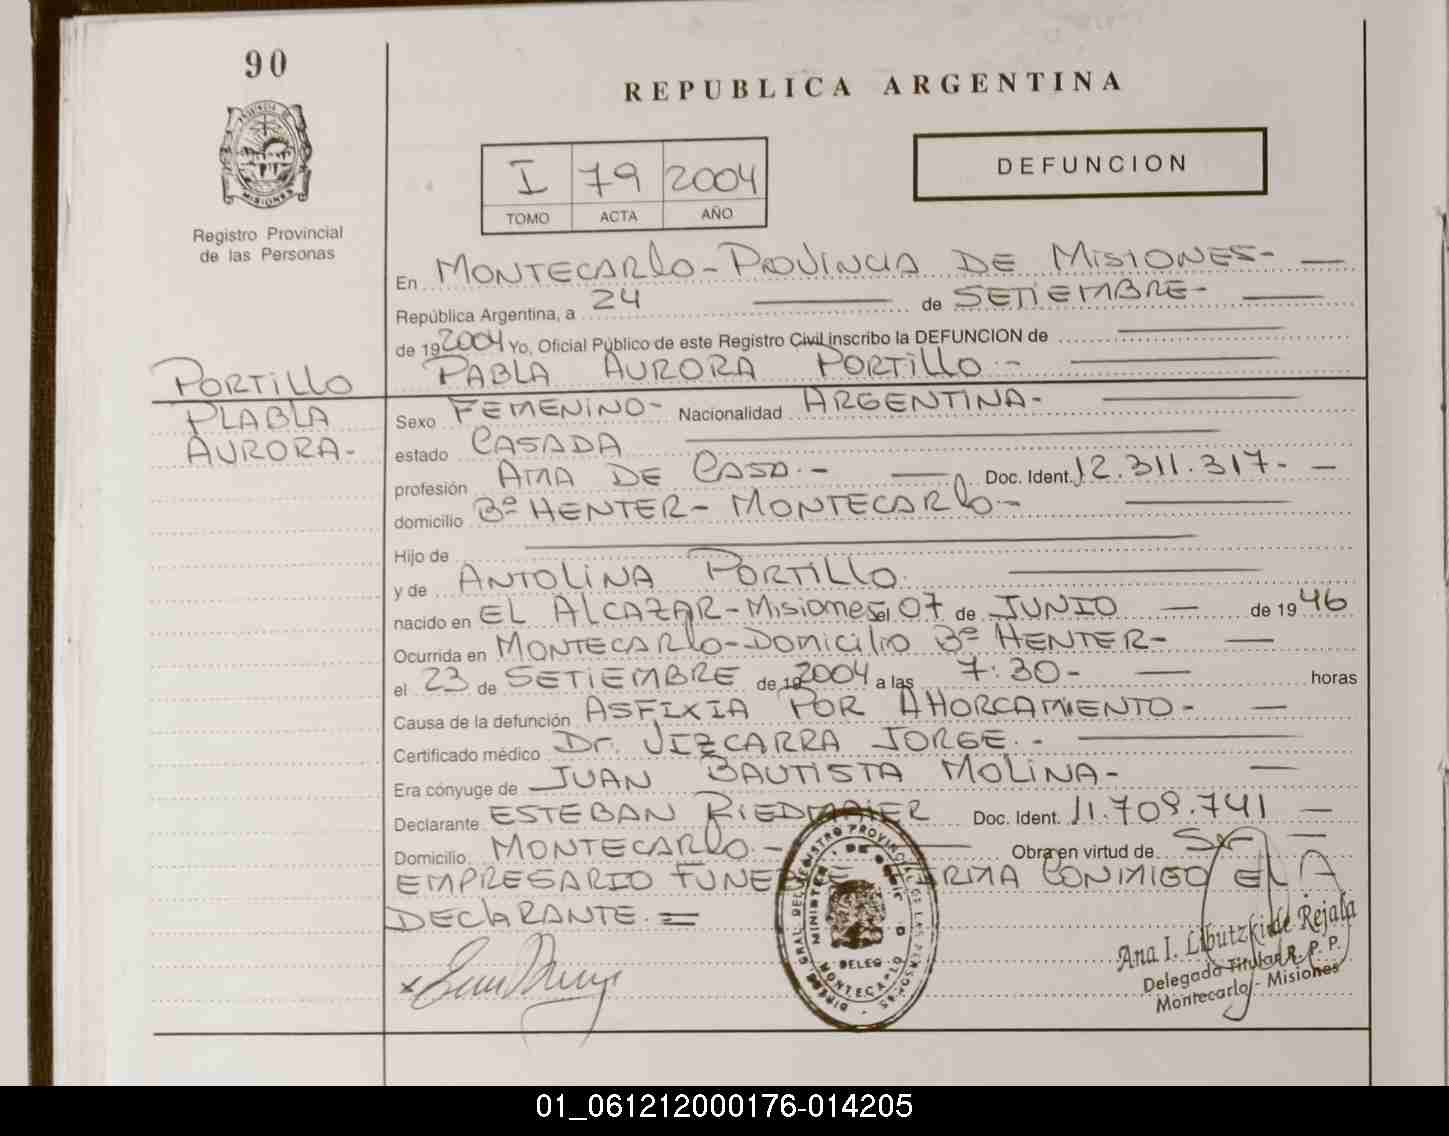 90
REPUBLICA ARGENTINA
PROVINCIA
MISIONES
I 79 2004
TOMO ACTA AÑO
DEFUNCION
Registro Provincial
de las Personas
En MONTECARLO - PROVINCIA DE MISIONES - —
República Argentina, a 24 — de SETIEMBRE - —
de 19 2004 Yo, Oficial Público de este Registro Civil inscribo la DEFUNCION de —
PABLA AURORA PORTILLO - —
PORTILLO
PLABLA
AURORA -
Sexo FEMENINO - Nacionalidad ARGENTINA - —
estado CASADA —
profesión AMA DE CASA - — Doc. Ident. 12.311.317 - —
domicilio Bº HENTER - MONTECARLO - —
Hijo de —
y de ANTOLINA PORTILLO. —
nacido en EL ALCAZAR - Misiones el 07 de JUNIO — de 19 46
Ocurrida en MONTECARLO - DOMICILIO Bº HENTER - —
el 23 de SETIEMBRE de 19 2004 a las 7:30 - — horas
Causa de la defunción ASFIXIA POR AHORCAMIENTO - —
Certificado médico Dr. VIZCARRA JORGE. - —
Era cónyuge de JUAN BAUTISTA MOLINA - —
Declarante ESTEBAN RIEDMAIER Doc. Ident. 11.709.741 —
Domicilio MONTECARLO - — Obra en virtud de Ser —
EMPRESARIO FUNE FIRMA CONMIGO EL A
DECLARANTE. =
DELEG
MONTECARLO
Ana I. Libutzki de Rejala
Delegada Titular R. P. P.
Montecarlo - Misiones
01_061212000176-014205